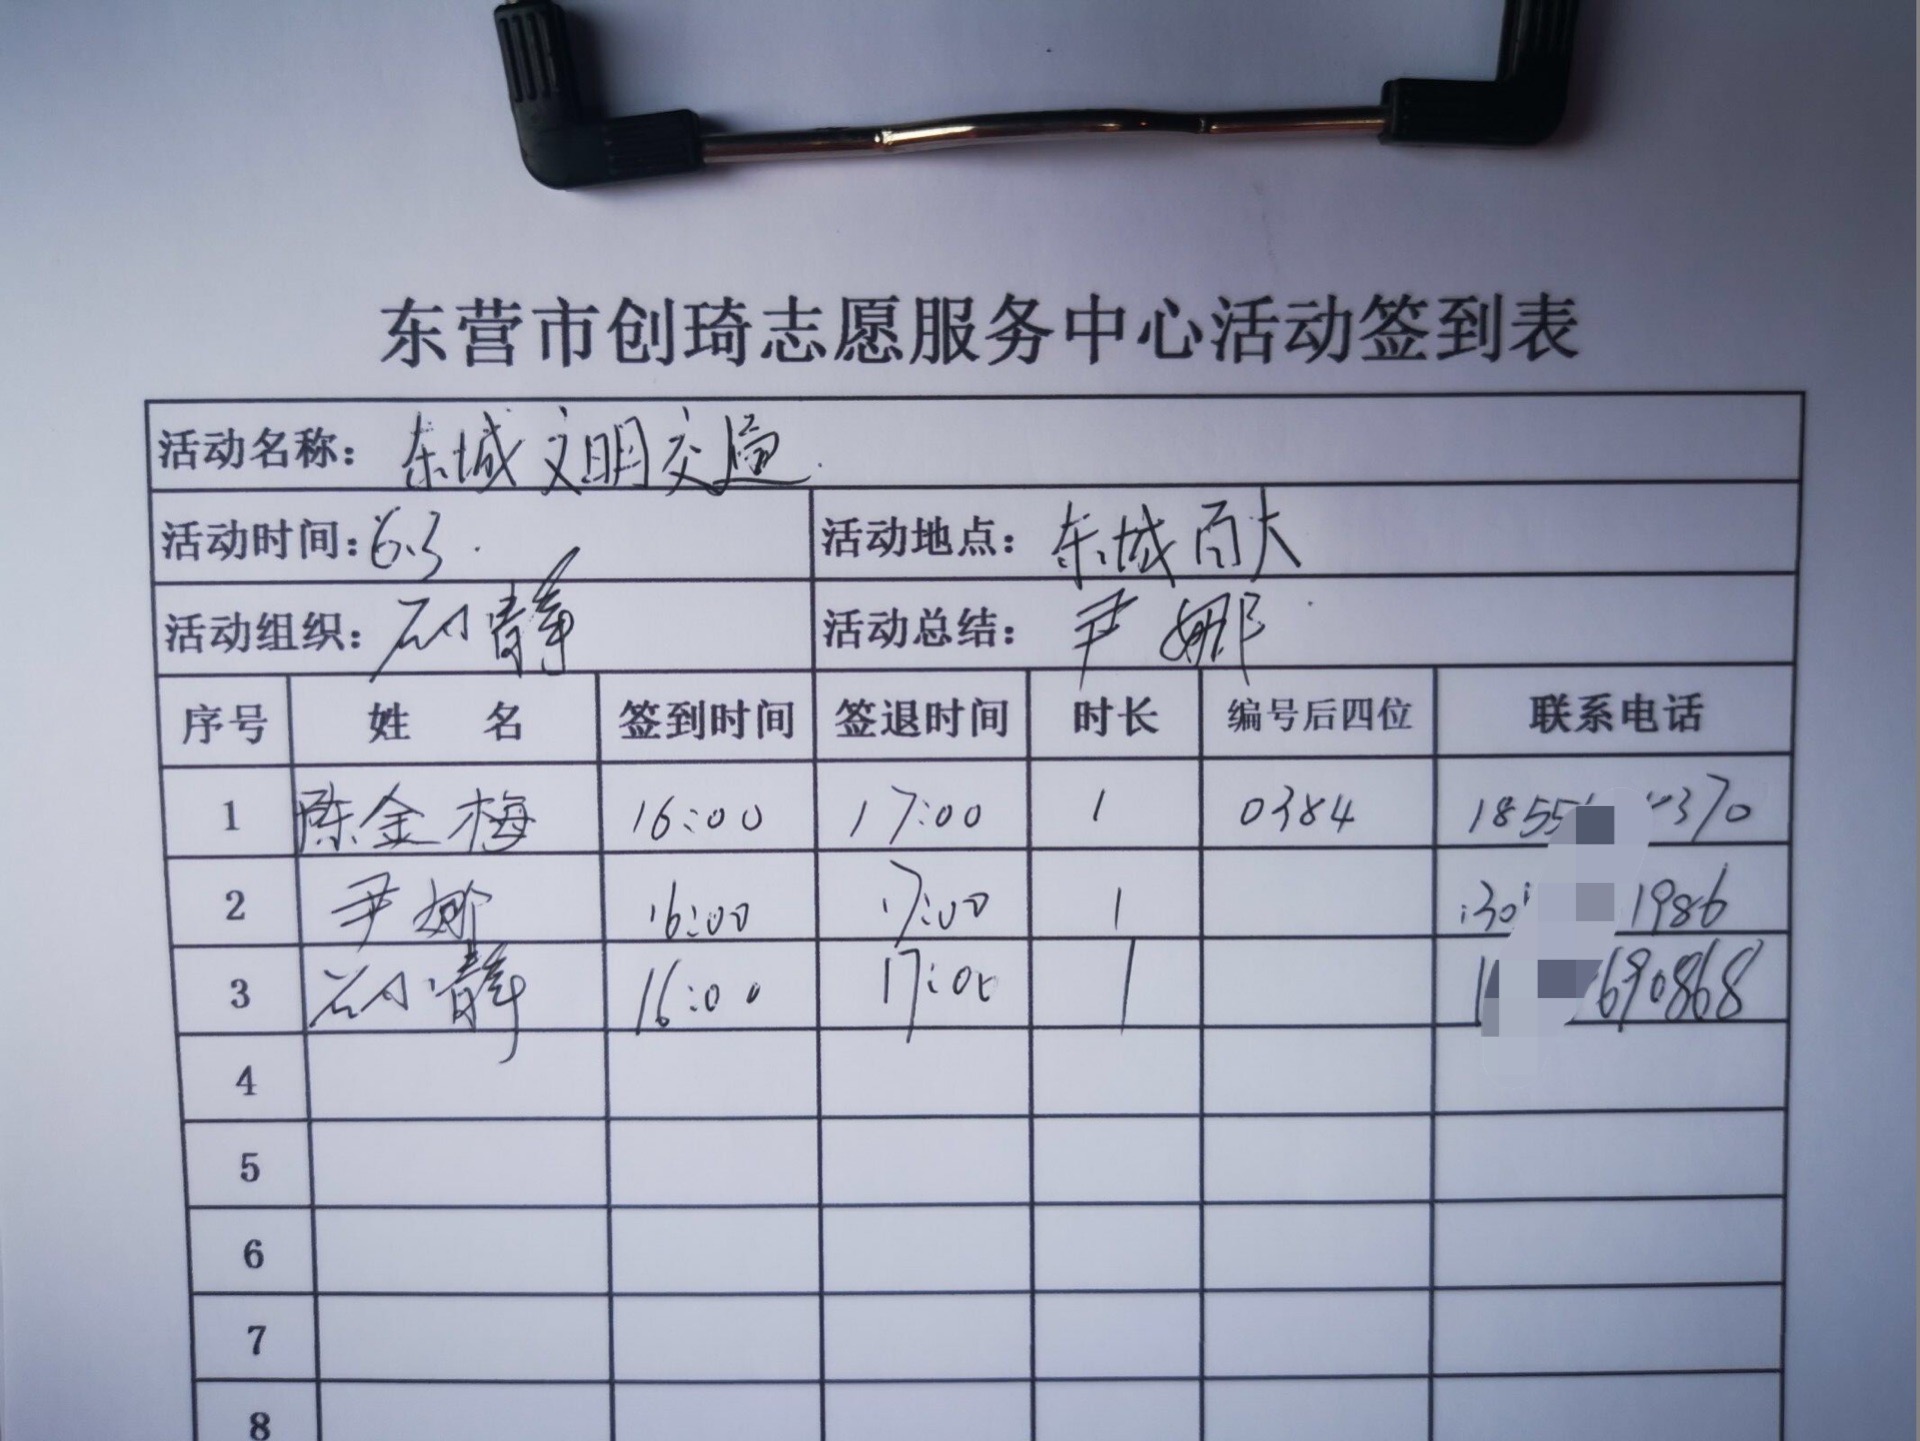 东营市创琦志愿服务中心活动签到表
活动名称：东城文明交通
活动时间：6.3 活动地点：东城百大
活动组织：石小静 活动总结：尹娜
序号 姓 名 签到时间 签退时间 时长 编号后四位 联系电话
1 陈金梅 16:00 17:00 1 0384 1855 370
2 尹娜 16:00 17:00 1 130 1986
3 石小静 16:00 17:00 1 1 690868
4
5
6
7
8